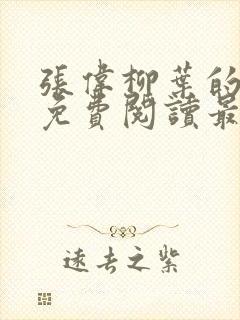 張偉柳葉的
免費閱讀最
遠去之紫